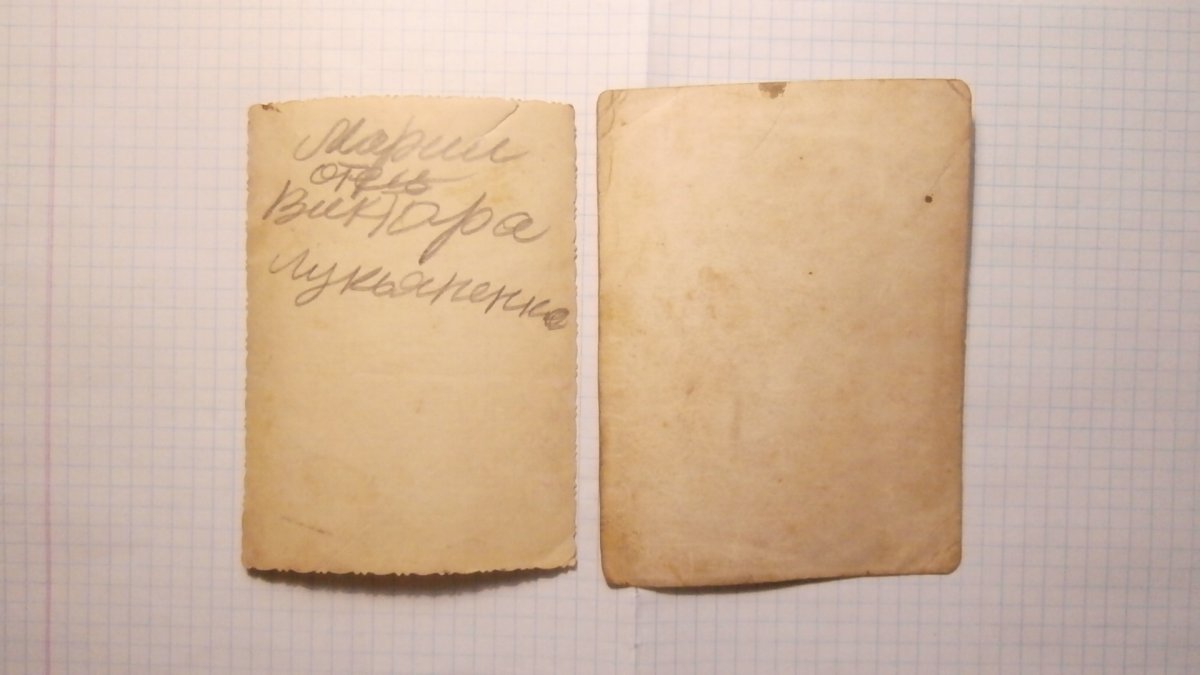 Марии
отец
Виктора
Лукьяненко